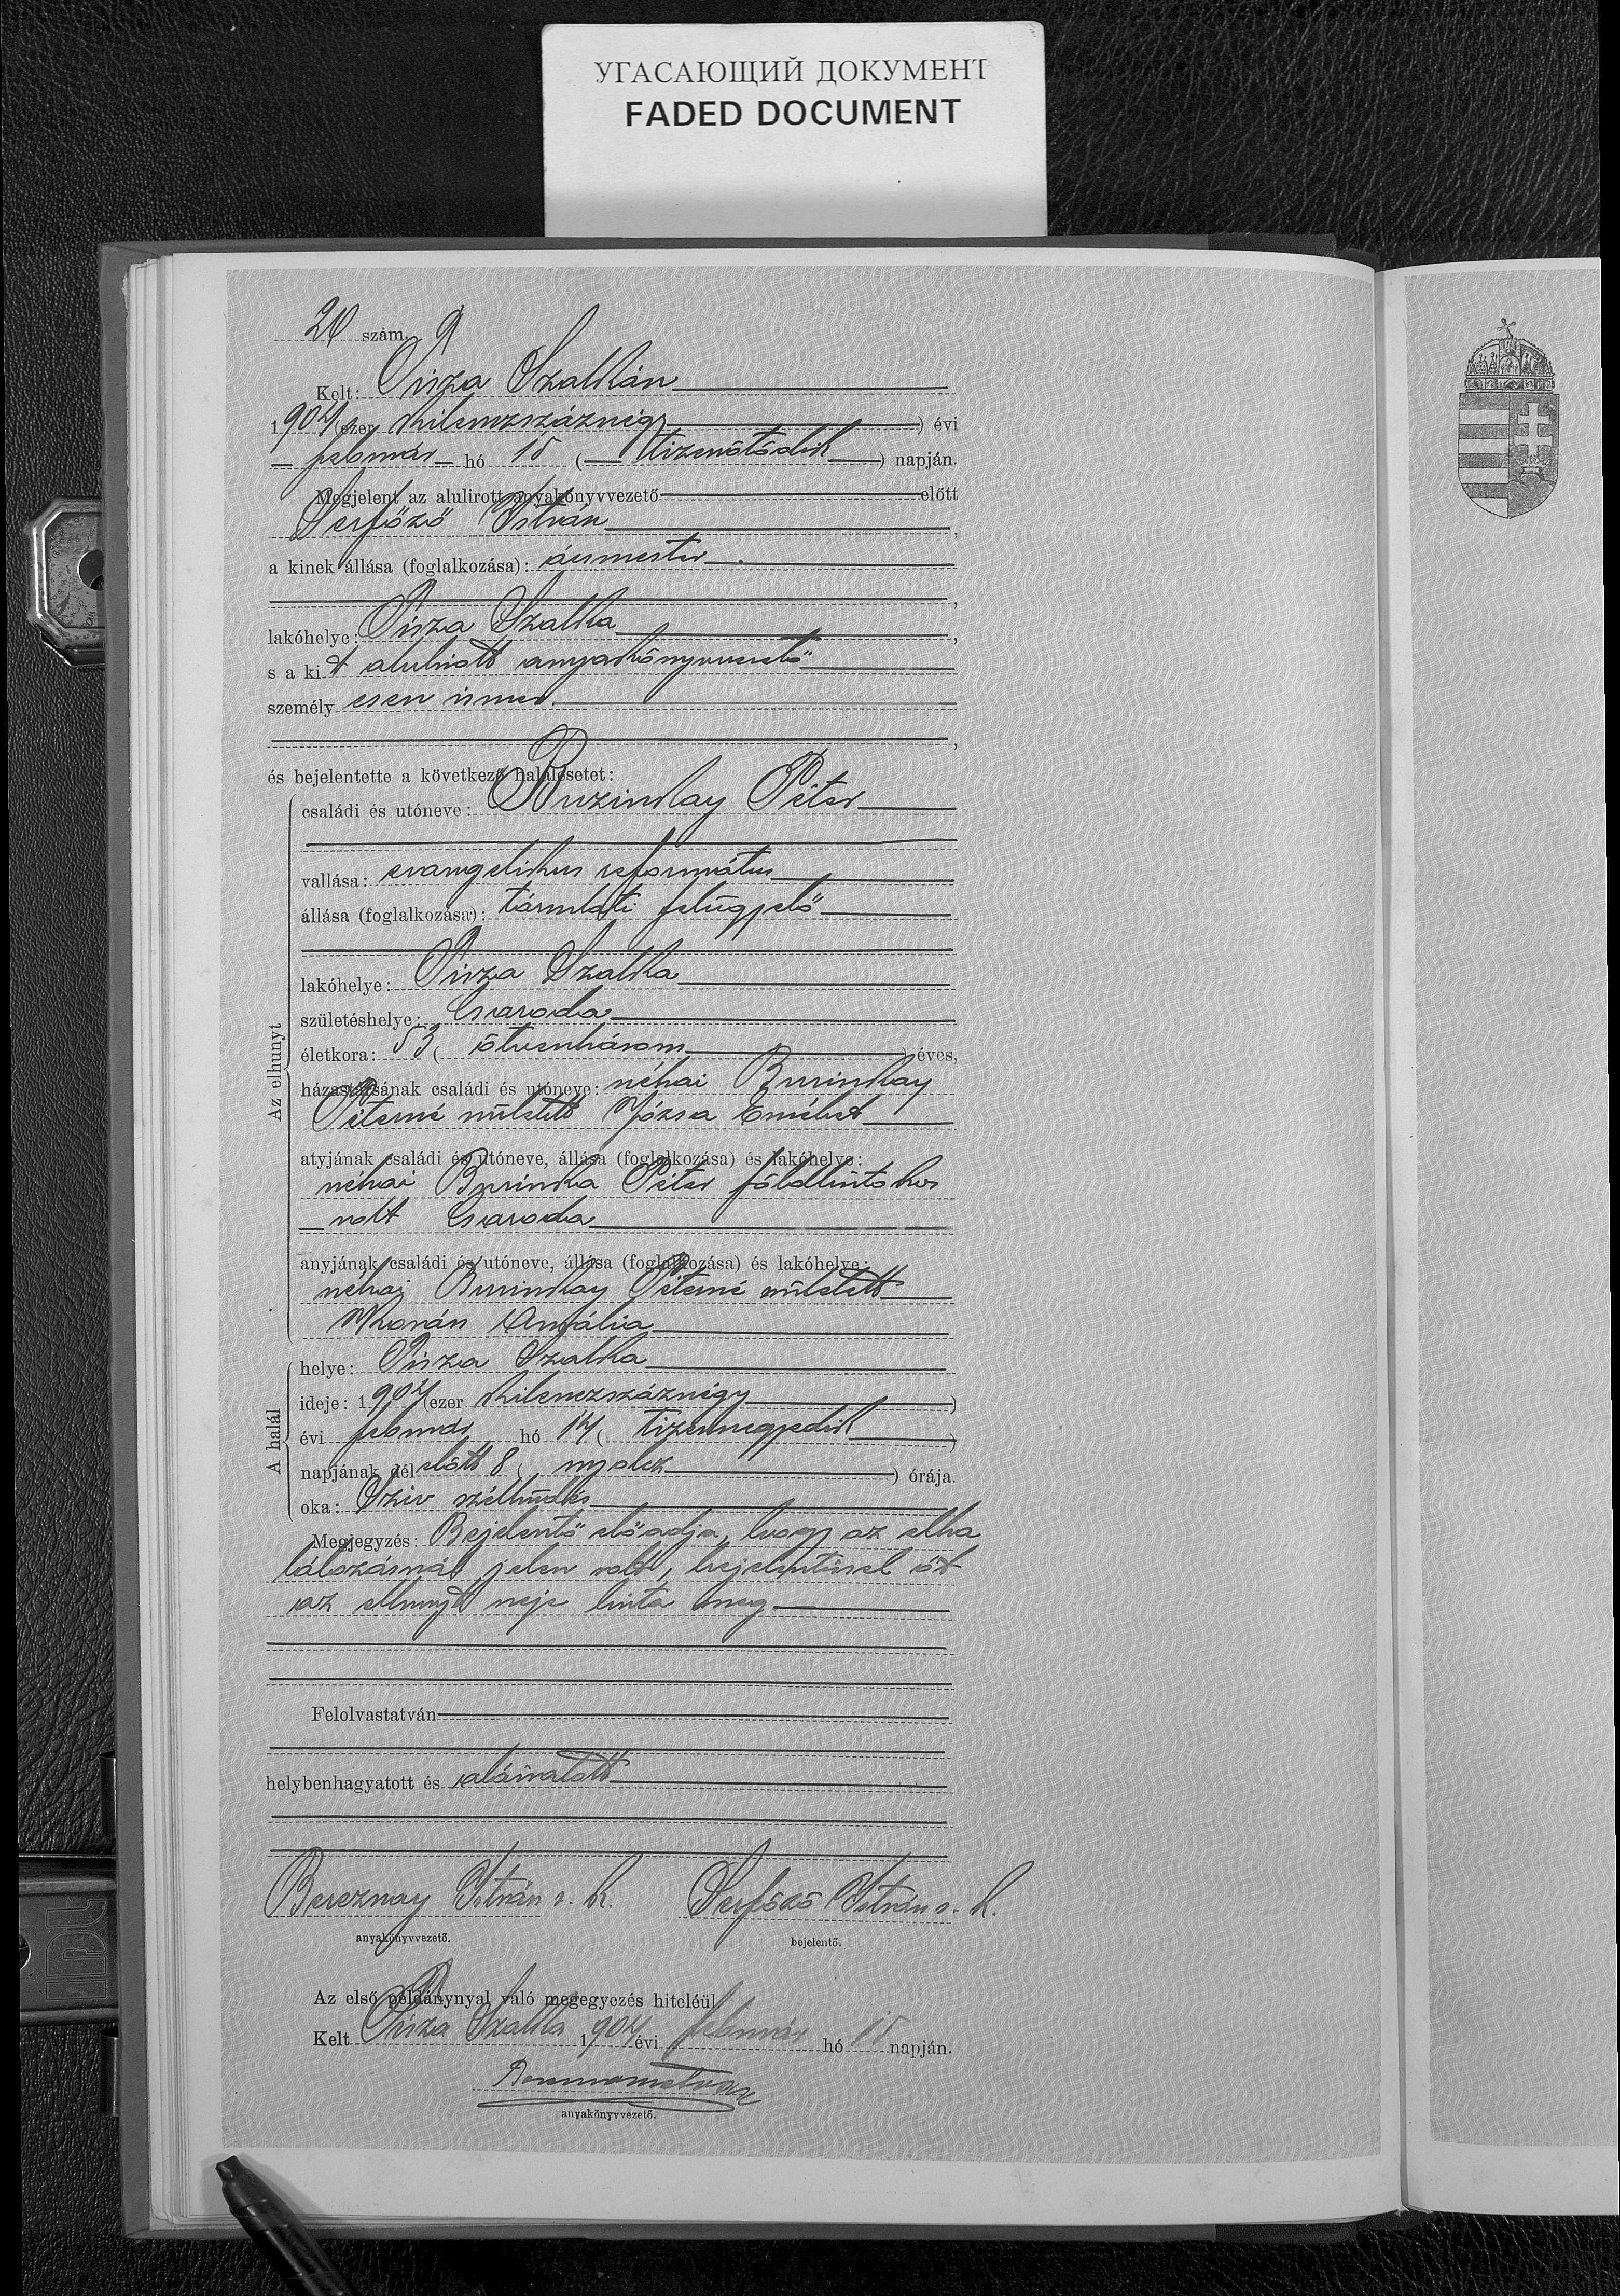 УГАСАЮЩИЙ ДОКУМЕНТ
FADED DOCUMENT
20 szám. 9
Kelt: Tisza Szalkán
1904 (ezer kilenczszáznégy) évi
február hó 15 (tizenötödik) napján.
Megjelent az alulirott anyakönyvvezető előtt
Serfőző István,
a kinek állása (foglalkozása): ácsmester
,
lakóhelye: Tisza Szalka,
s a kit alulirott anyakönyvvezető
személy esen ismer
,
és bejelentette a következő halálesetet:
Az elhunyt
családi és utóneve: Buzinkay Péter
vallása: evangelikus református
állása (foglalkozása): felügyelő
lakóhelye: Tisza Szalka
születéshelye: Csaroda
életkora: 53 (ötvenhárom) éves,
házastársának családi és utóneve: néhai Businkay
Péterné született Józsa
atyjának családi és utóneve, állása (foglalkozása) és lakóhelye:
néhai Businka Péter földbirtokos
volt Csaroda
anyjának családi és utóneve, állása (foglalkozása) és lakóhelye:
néhai Businkay Péterné született
Amália
A halál
helye: Tisza Szalka
ideje: 1904 (ezer kilenczszáznégy)
évi február hó 14 (tizennegyedik)
napjának dél előtt 8 (nyolcz) órája.
oka: Sziv szélhüdés
Megjegyzés: Bejelentő előadja, hogy az elha
lálozásnál jelen volt, bejelentéssel őt
az elhunyt neje bizta meg
Felolvastatván
helybenhagyatott és aláiratott
Bereznay István s. k. Serfőző István s. k.
anyakönyvvezető. bejelentő.
Az első példánynyal való megegyezés hiteléül
Kelt Tisza Szalka 1904 évi február hó 15 napján.
anyakönyvvezető.